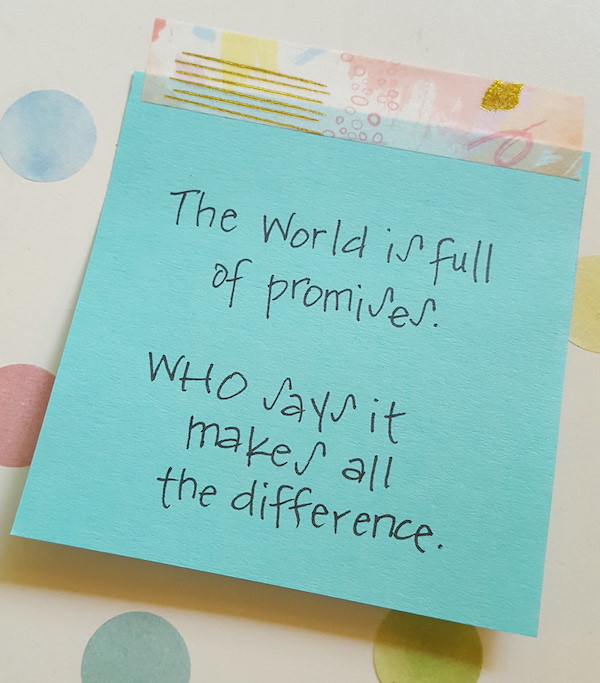 The World is full
of promises.
WHO says it
makes all
the difference.